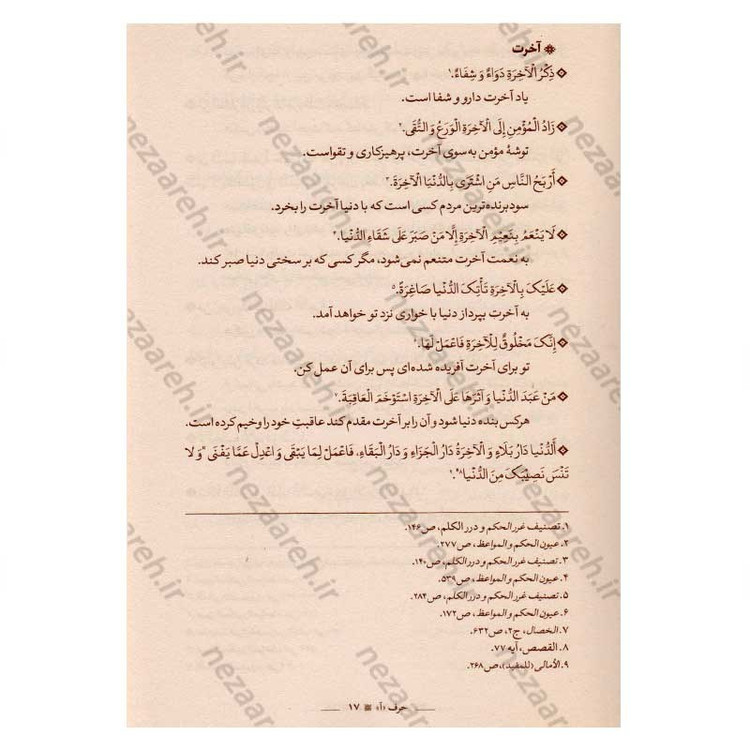 آخرت
ذِكْرُ الْآخِرَةِ دَوَاءٌ وَ شِفَاءٌ.۱
یاد آخرت دارو و شفا است.
زَادُ الْمُؤْمِنِ إِلَى الْآخِرَةِ الْوَرَعُ وَ التُّقَى.۲
توشهٔ مؤمن به‌سوی آخرت، پرهیزکاری و تقواست.
أَرْبَحُ النَّاسِ مَنِ اشْتَرَى بِالدُّنْيَا الْآخِرَةَ.۳
سودبرنده‌ترین مردم کسی است که با دنیا آخرت را بخرد.
لَا يَنْعَمُ بِنَعِيمِ الْآخِرَةِ إِلَّا مَنْ صَبَرَ عَلَى شَقَاءِ الدُّنْيَا.۴
به نعمت آخرت متنعم نمی‌شود، مگر کسی که بر سختی دنیا صبر کند.
عَلَيْکَ بِالْآخِرَةِ تَأْتِکَ الدُّنْيَا صَاغِرَةً.۵
به آخرت بپرداز دنیا با خواری نزد تو خواهد آمد.
إِنَّکَ مَخْلُوقٌ لِلْآخِرَةِ فَاعْمَلْ لَهَا.۶
تو برای آخرت آفریده شده‌ای پس برای آن عمل کن.
مَنْ عَبَدَ الدُّنْيَا وَ آثَرَهَا عَلَى الْآخِرَةِ اسْتَوْخَمَ الْعَاقِبَةَ.۷
هرکس بنده دنیا شود و آن را بر آخرت مقدم کند عاقبتِ خود را وخیم کرده است.
أَلدُّنْيَا دَارُ بَلَاءٍ وَ الْآخِرَةُ دَارُ الْجَزَاءِ وَ دَارُ الْبَقَاءِ، فَاعْمَلْ لِمَا يَبْقَى وَ اعْدِلْ عَمَّا يَفْنَى «وَ لا
تَنْسَ نَصِيبَکَ مِنَ الدُّنْيا»۸.۹
۱. تصنیف غرر الحکم و درر الکلم، ص۱۴۶.
۲. عیون الحکم و المواعظ، ص۲۷۷.
۳. تصنیف غرر الحکم و درر الکلم، ص۱۴۰.
۴. عیون الحکم و المواعظ، ص۵۳۹.
۵. تصنیف غرر الحکم و درر الکلم، ص۲۸۴.
۶. عیون الحکم و المواعظ، ص۱۷۲.
۷. الخصال، ج۲، ص۶۳۲.
۸. القصص، آیه ۷۷.
۹. الأمالی (للمفید)، ص۲۶۸.
حرف «آ» ۱۷
nezaareh.ir